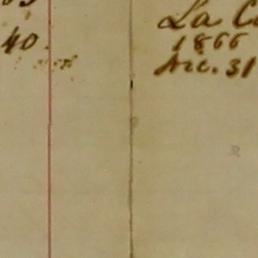 40.
La C
1866
Dec. 31